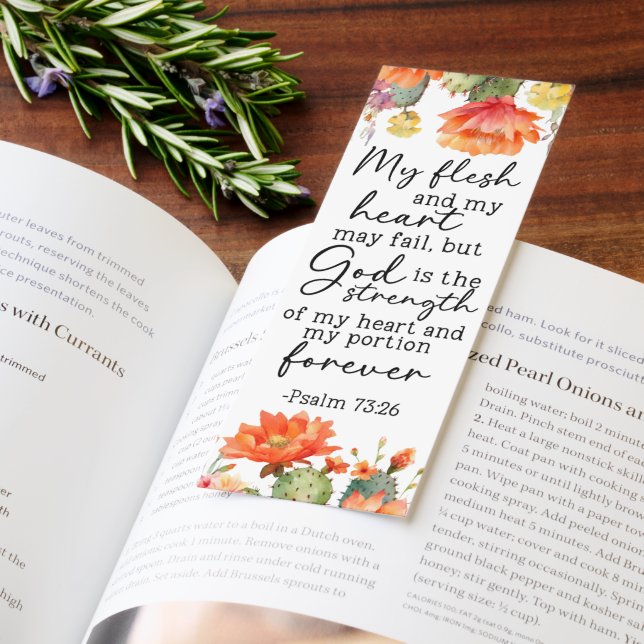 My flesh
and my
heart
may fail, but
God is the
strength
of my heart and
my portion
forever
-Psalm 73:26
uter leaves from trimmed
routs, reserving the leaves
technique shortens the cook
ce presentation.
s with Currants
trimmed
the
high
Brussels
quarts water
cups pearl
trimmed
about 1½
cooking spray
teaspoon
teaspoon
tablespoons honey
3 quarts water to a boil in a Dutch oven.
cook 1 minute. Remove onions with a
spoon. Drain and rinse under cold running
drain. Set aside. Add Brussels sprouts to
ed ham. Look for it sliced
collo, substitute prosciutt
zed Pearl Onions and
boiling water; boil 2 minut
Drain. Pinch stem end of ea
2. Heat a large nonstick skill
heat. Coat pan with cooking
5 minutes or until lightly brow
pan. Wipe pan with a paper tow
cooking spray. Add peeled onion
medium heat 5 minutes. Add Brus
¼ cup water; cover and cook 8 min
tender, stirring occasionally. Sprin
ground black pepper and kosher s
honey; stir gently. Top with ham.
(serving size: ½ cup).
CALORIES 100, FAT 2g (sat 0.9g, mono
CHOL 4mg; IRON 1mg; SODIUM